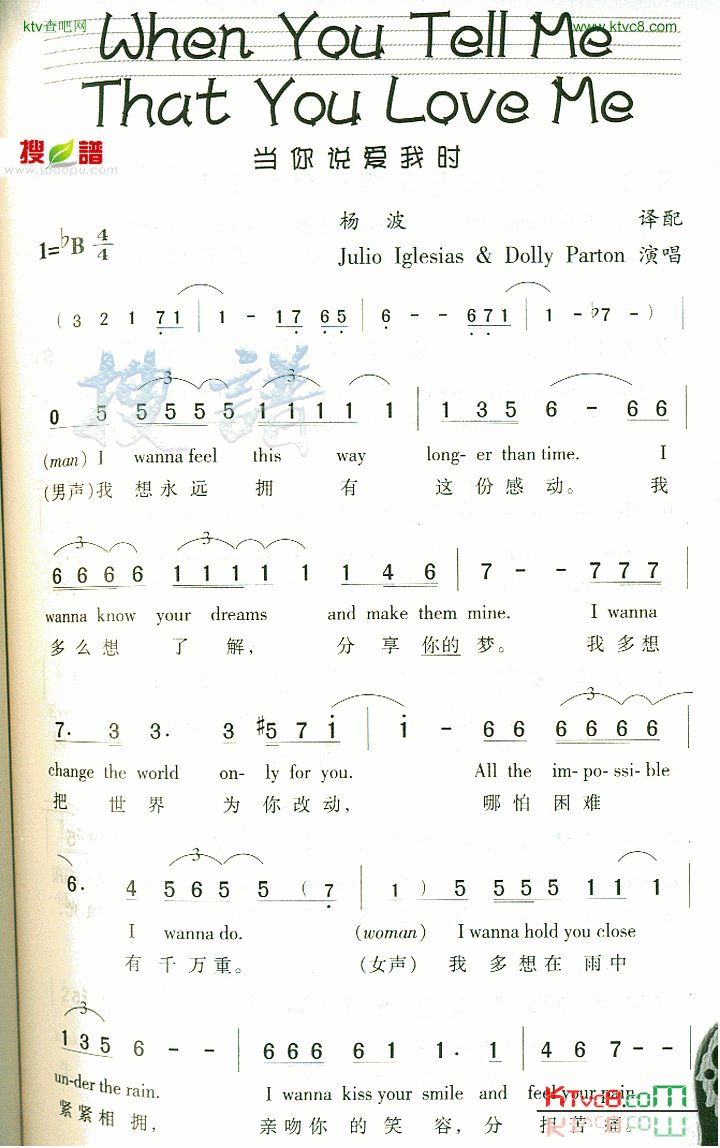 ktv查吧网 www.ktvc8.com
When You Tell Me
That You Love Me
搜谱
www.sooopu.com
当你说爱我时
杨 波 译配
1=♭B 4/4
Julio Iglesias & Dolly Parton 演唱
( 3 2 1 7 1 | 1 - 1 7 6 5 | 6 - - 6 7 1 | 1 - ♭7 - ) |
搜譜
0 5 5 5 5 5 1 1 1 1 1 1 | 1 3 5 6 - 6 6
(man) I wanna feel this way long- er than time. I
(男声)我 想永远 拥 有 这 份 感 动。 我
6 6 6 6 1 1 1 1 1 1 1 4 6 | 7 - - 7 7 7 |
wanna know your dreams and make them mine. I wanna
多么想 了 解, 分 享 你的 梦。 我多想
7. 3 3. 3 #5 7 1 | 1 - 6 6 6 6 6 6
change the world on- ly for you. All the im-pos-sible
把 世 界 为 你 改 动, 哪 怕 困 难
6. 4 5 6 5 5 ( 7 | 1 ) 5 5 5 5 1 1 1
I wanna do. (woman) I wanna hold you close
有 千 万 重。 (女声) 我 多 想 在 雨 中
1 3 5 6 - - | 6 6 6 6 6 1 1. 1 | 4 6 7 - -
un-der the rain. I wanna kiss your smile and feel your pain.
紧紧相拥, 亲吻你的笑容,分担苦痛。
KTvc8.com